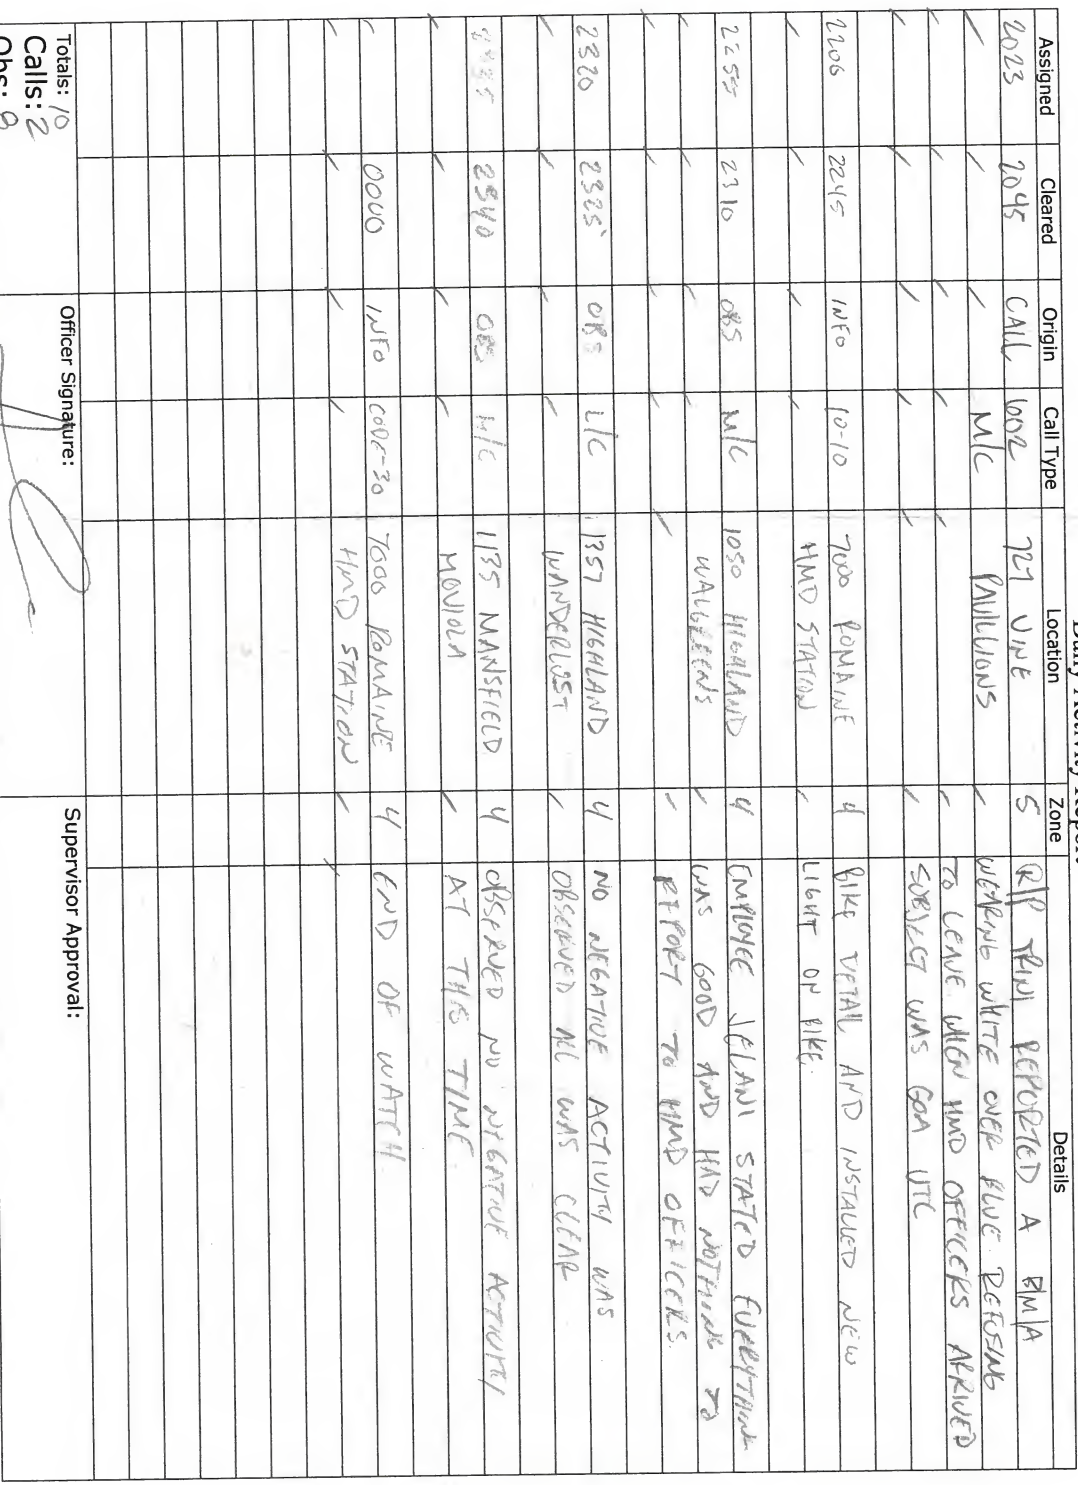 Daily Activity Report
Assigned Cleared Origin Call Type Location Zone Details
2023 2045 CALL 602 727 VINE 5 R/P TRINI REPORTED A BM/A
M/C PAVILLIONS WEARING WHITE OVER BLUE REFUSING
TO LEAVE. WHEN HMD OFFICERS ARRIVED
SUBJECT WAS GOA UTC
2206 2245 INFO 10-10 7000 ROMAINE 4 BIKE DETAIL AND INSTALLED NEW
HMD STATION LIGHT ON BIKE.
2255 2310 OBS M/C 1050 HIGHLAND 4 EMPLOYEE JELANI STATED EVERYTHING
WALGREENS WAS GOOD AND HAD NOTHING TO
REPORT TO HMD OFFICERS.
2320 2325 OBS L/C 1357 HIGHLAND 4 NO NEGATIVE ACTIVITY WAS
WANDERLUST OBSERVED ALL WAS CLEAR
2340 OBS M/C 1135 MANSFIELD 4 OBSERVED NO NEGATIVE ACTIVITY
MOVIOLA AT THIS TIME
0000 INFO CODE-30 7000 ROMAINE 4 END OF WATCH
HMD STATION
Totals: 10 Officer Signature: Supervisor Approval:
Calls: 2
Obs: 8